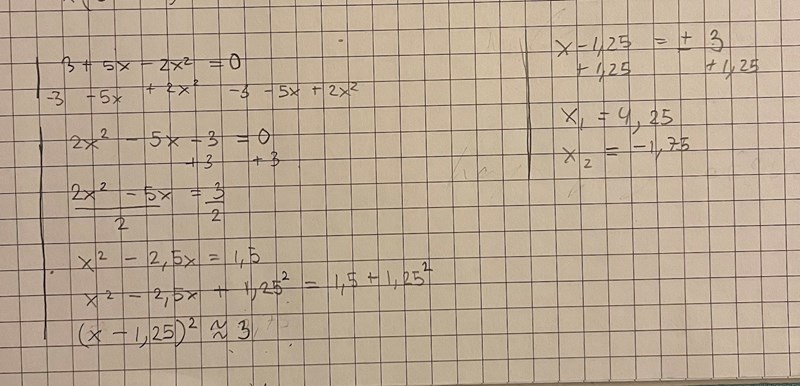 3 + 5x - 2x² = 0
-3 -5x + 2x² -3 -5x + 2x²
2x² - 5x - 3 = 0
+3 +3
2x² - 5x = 3
2 2
x² - 2,5x = 1,5
x² - 2,5x + 1,25² = 1,5 + 1,25²
(x - 1,25)² ≈ 3
x - 1,25 = ± 3
+1,25 +1,25
x₁ = 4,25
x₂ = -1,75